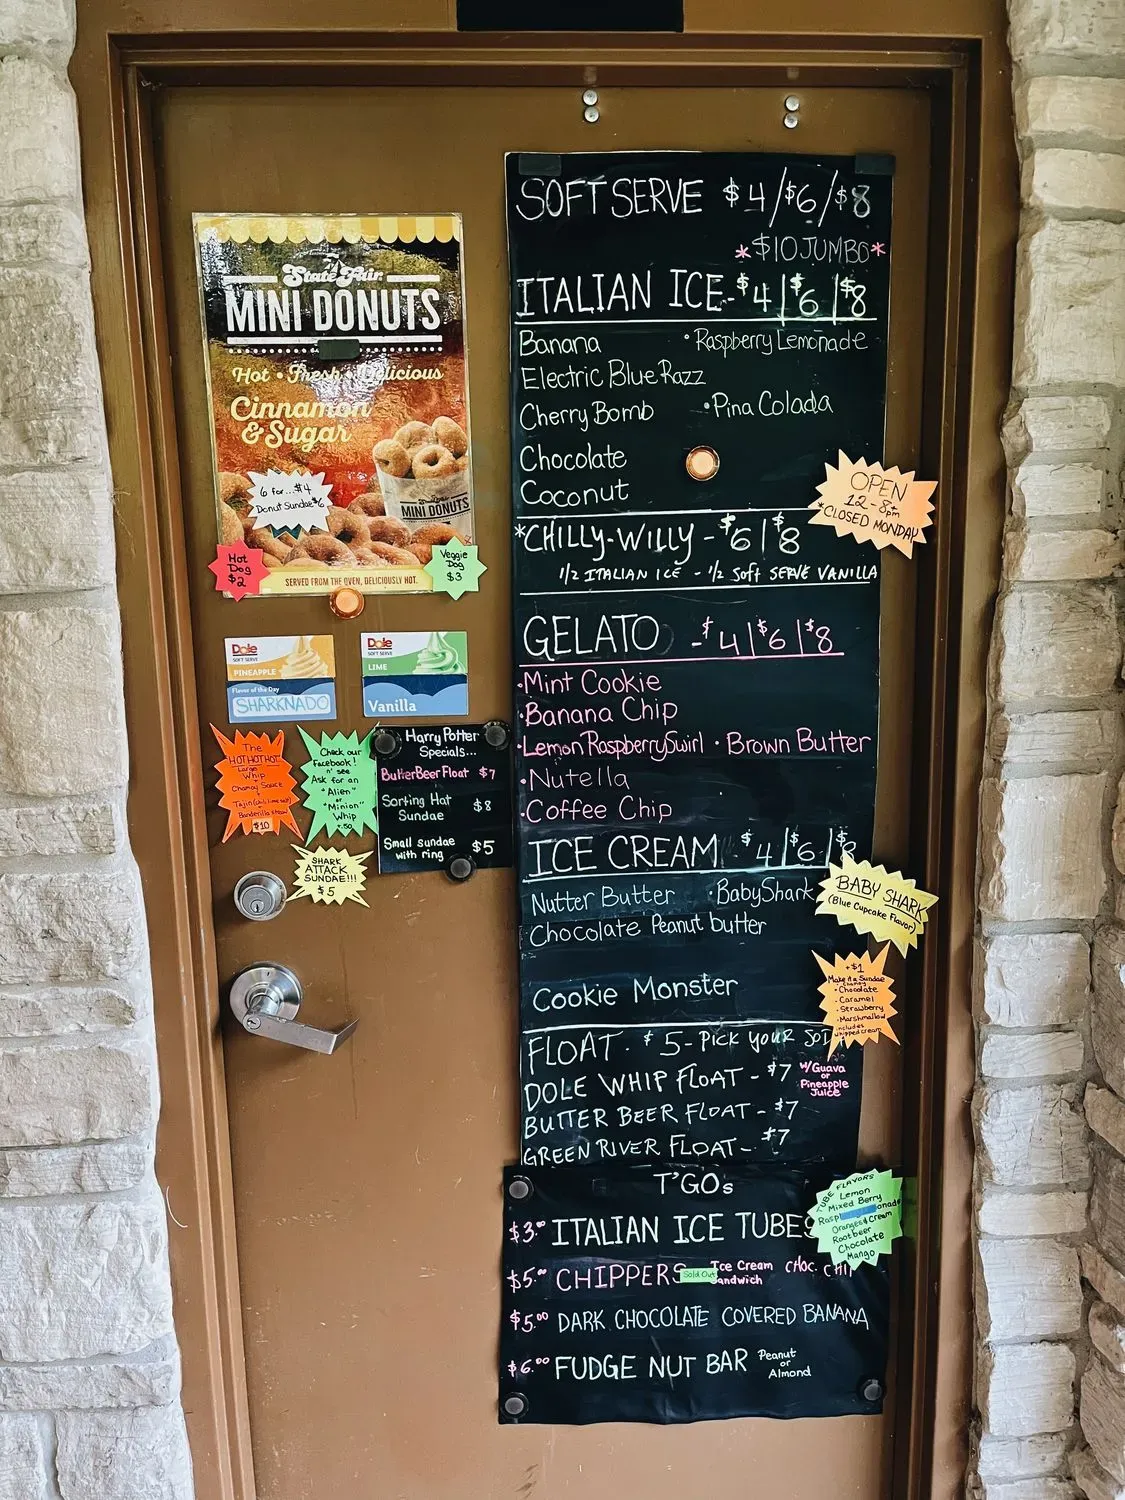 State Fair
MINI DONUTS
Hot • Fresh • Delicious
Cinnamon
& Sugar
6 for...$4
Donut Sundae $6
MINI DONUTS
Hot
Dog
$2
Veggie
Dog
$3
SERVED FROM THE OVEN, DELICIOUSLY HOT.
Dole
SOFT SERVE
PINEAPPLE
Flavor of the Day
SHARKNADO
Dole
SOFT SERVE
LIME
Vanilla
The
HOTHOTHOT
Large
Whip
Chamoy Sauce
+
Tajin
Banderilla Straw
$10
Check our
Facebook!
n' see
Ask for an
"Alien"
or
"Minion"
Whip
+.50
Harry Potter
Specials...
ButterBeer Float $7
Sorting Hat
Sundae $8
Small sundae
with ring $5
SHARK
ATTACK
SUNDAE!!!
$5
SOFT SERVE $4/$6/$8
*$10 JUMBO*
ITALIAN ICE-$4|$6|$8
Banana •Raspberry Lemonade
Electric Blue Razz
Cherry Bomb •Pina Colada
Chocolate
Coconut
OPEN
12-8pm
*CLOSED MONDAY
*CHILLY-WILLY-$6|$8
1/2 ITALIAN ICE - 1/2 Soft SERVE VANILLA
GELATO -$4|$6|$8
•Mint Cookie
•Banana Chip
•Lemon Raspberry Swirl •Brown Butter
•Nutella
•Coffee Chip
ICE CREAM $4|$6|$8
Nutter Butter •Baby Shark
BABY SHARK
(Blue Cupcake Flavor)
Chocolate Peanut butter
Cookie Monster
+$1
Make it a Sundae
Chamoy
•Chocolate
•Caramel
•Strawberry
•Marshmallow
includes
whipped cream
FLOAT- $5-PICK YOUR
DOLE WHIP FLOAT-$7 w/Guava
or
Pineapple
Juice
BUTTER BEER FLOAT-$7
GREEN RIVER FLOAT-$7
T'GOs
TUBE FLAVORS
Lemon
Mixed Berry
Oranges & Cream
Rootbeer
Chocolate
Mango
$3.00 ITALIAN ICE TUBES
$5.00 CHIPPERS Sold Out Ice Cream
Sandwich CHOC. CHIP
$5.00 DARK CHOCOLATE COVERED BANANA
$6.00 FUDGE NUT BAR Peanut
or
Almond